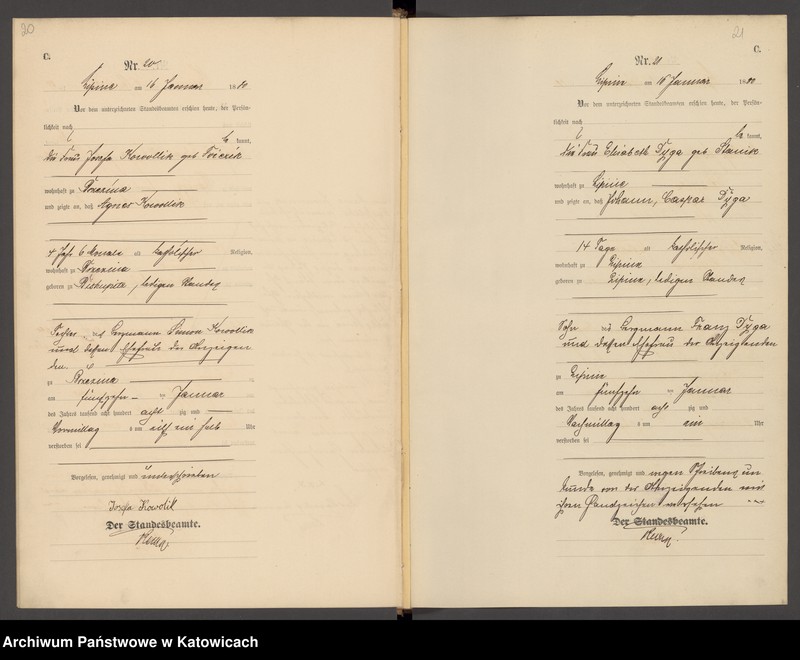 20
C.
Nr. 20
Lipine am 16 Januar 1880
Vor dem unterzeichneten Standesbeamten erschien heute, der Persön-
lichkeit nach
be kannt,
die Frau Josefa Kowollik geb
wohnhaft zu Brzezina
und zeigte an, daß Agnes Kowollik
4 Jahr 6 Monate alt katholischer Religion,
wohnhaft zu Brzezina
geboren zu Biskupitz, ledigen Standes
Tochter des Bergmann Simon Kowollik
und dessen Ehefrau der Anzeigen
den
zu Brzezina
am fünfzehn ten Januar
des Jahres tausend acht hundert acht zig und
Vormittag s um elf ein halb Uhr
verstorben sei
Vorgelesen, genehmigt und unterschrieben
Josefa Kowolik
Der Standesbeamte.
21
C.
Nr. 21
Lipine am 16 Januar 1880
Vor dem unterzeichneten Standesbeamten erschien heute, der Persön-
lichkeit nach
be kannt,
die Frau Elisabeth Dyga geb Stanik
wohnhaft zu Lipine
und zeigte an, daß Johann, Caspar Dyga
14 Tage alt katholischer Religion,
wohnhaft zu Lipine
geboren zu Lipine, ledigen Standes
Sohn des Bergmann Franz Dyga
und dessen Ehefrau der Anzeigenden
zu Lipine
am fünfzehn ten Januar
des Jahres tausend acht hundert acht zig und
Nachmittag s um ein Uhr
verstorben sei
Vorgelesen, genehmigt und wegen Schreibens un
kunde von der Anzeigenden mit
ihren Handzeichen versehen
Der Standesbeamte.
Archiwum Państwowe w Katowicach